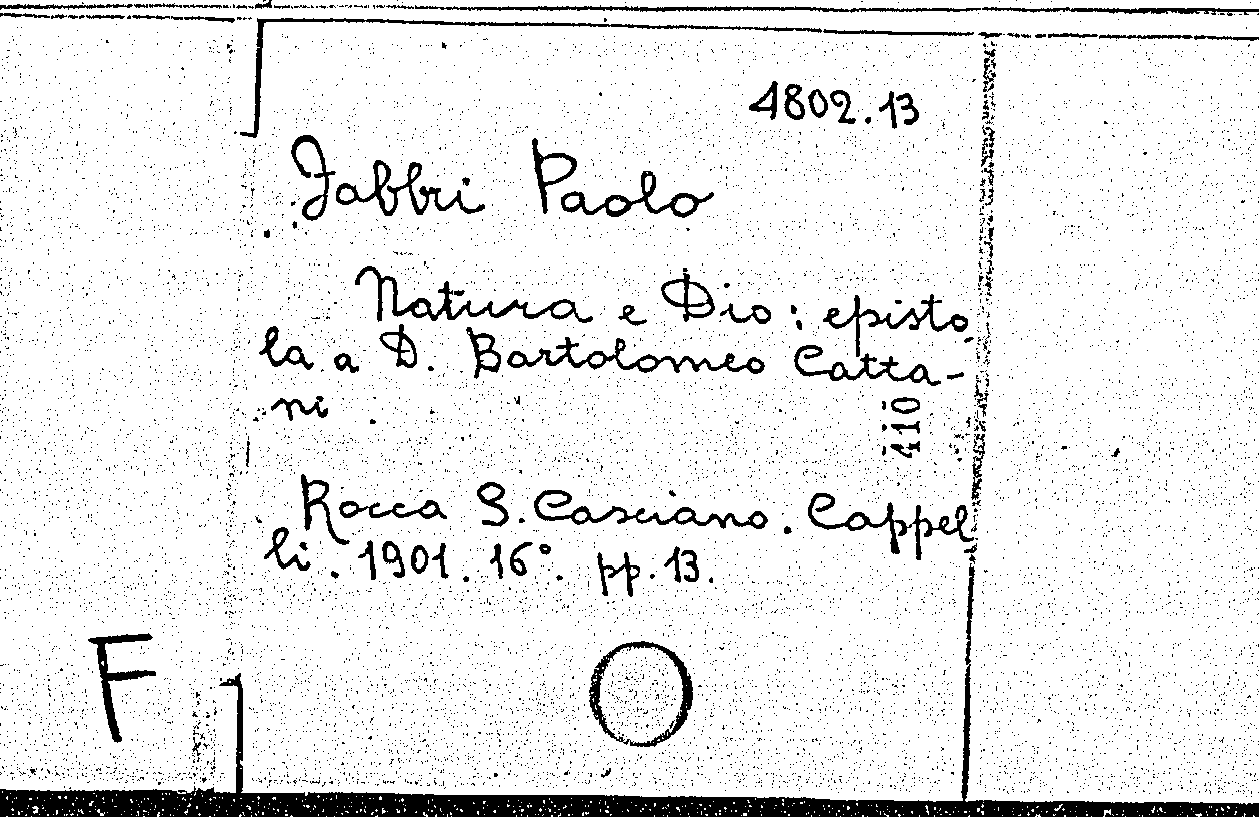 4802.13
Fabbri Paolo
Natura e Dio : episto
la a D. Bartolomeo Catta-
ni
410
Rocca S. Casciano. Cappel
li. 1901. 16°. pp. 13.
F